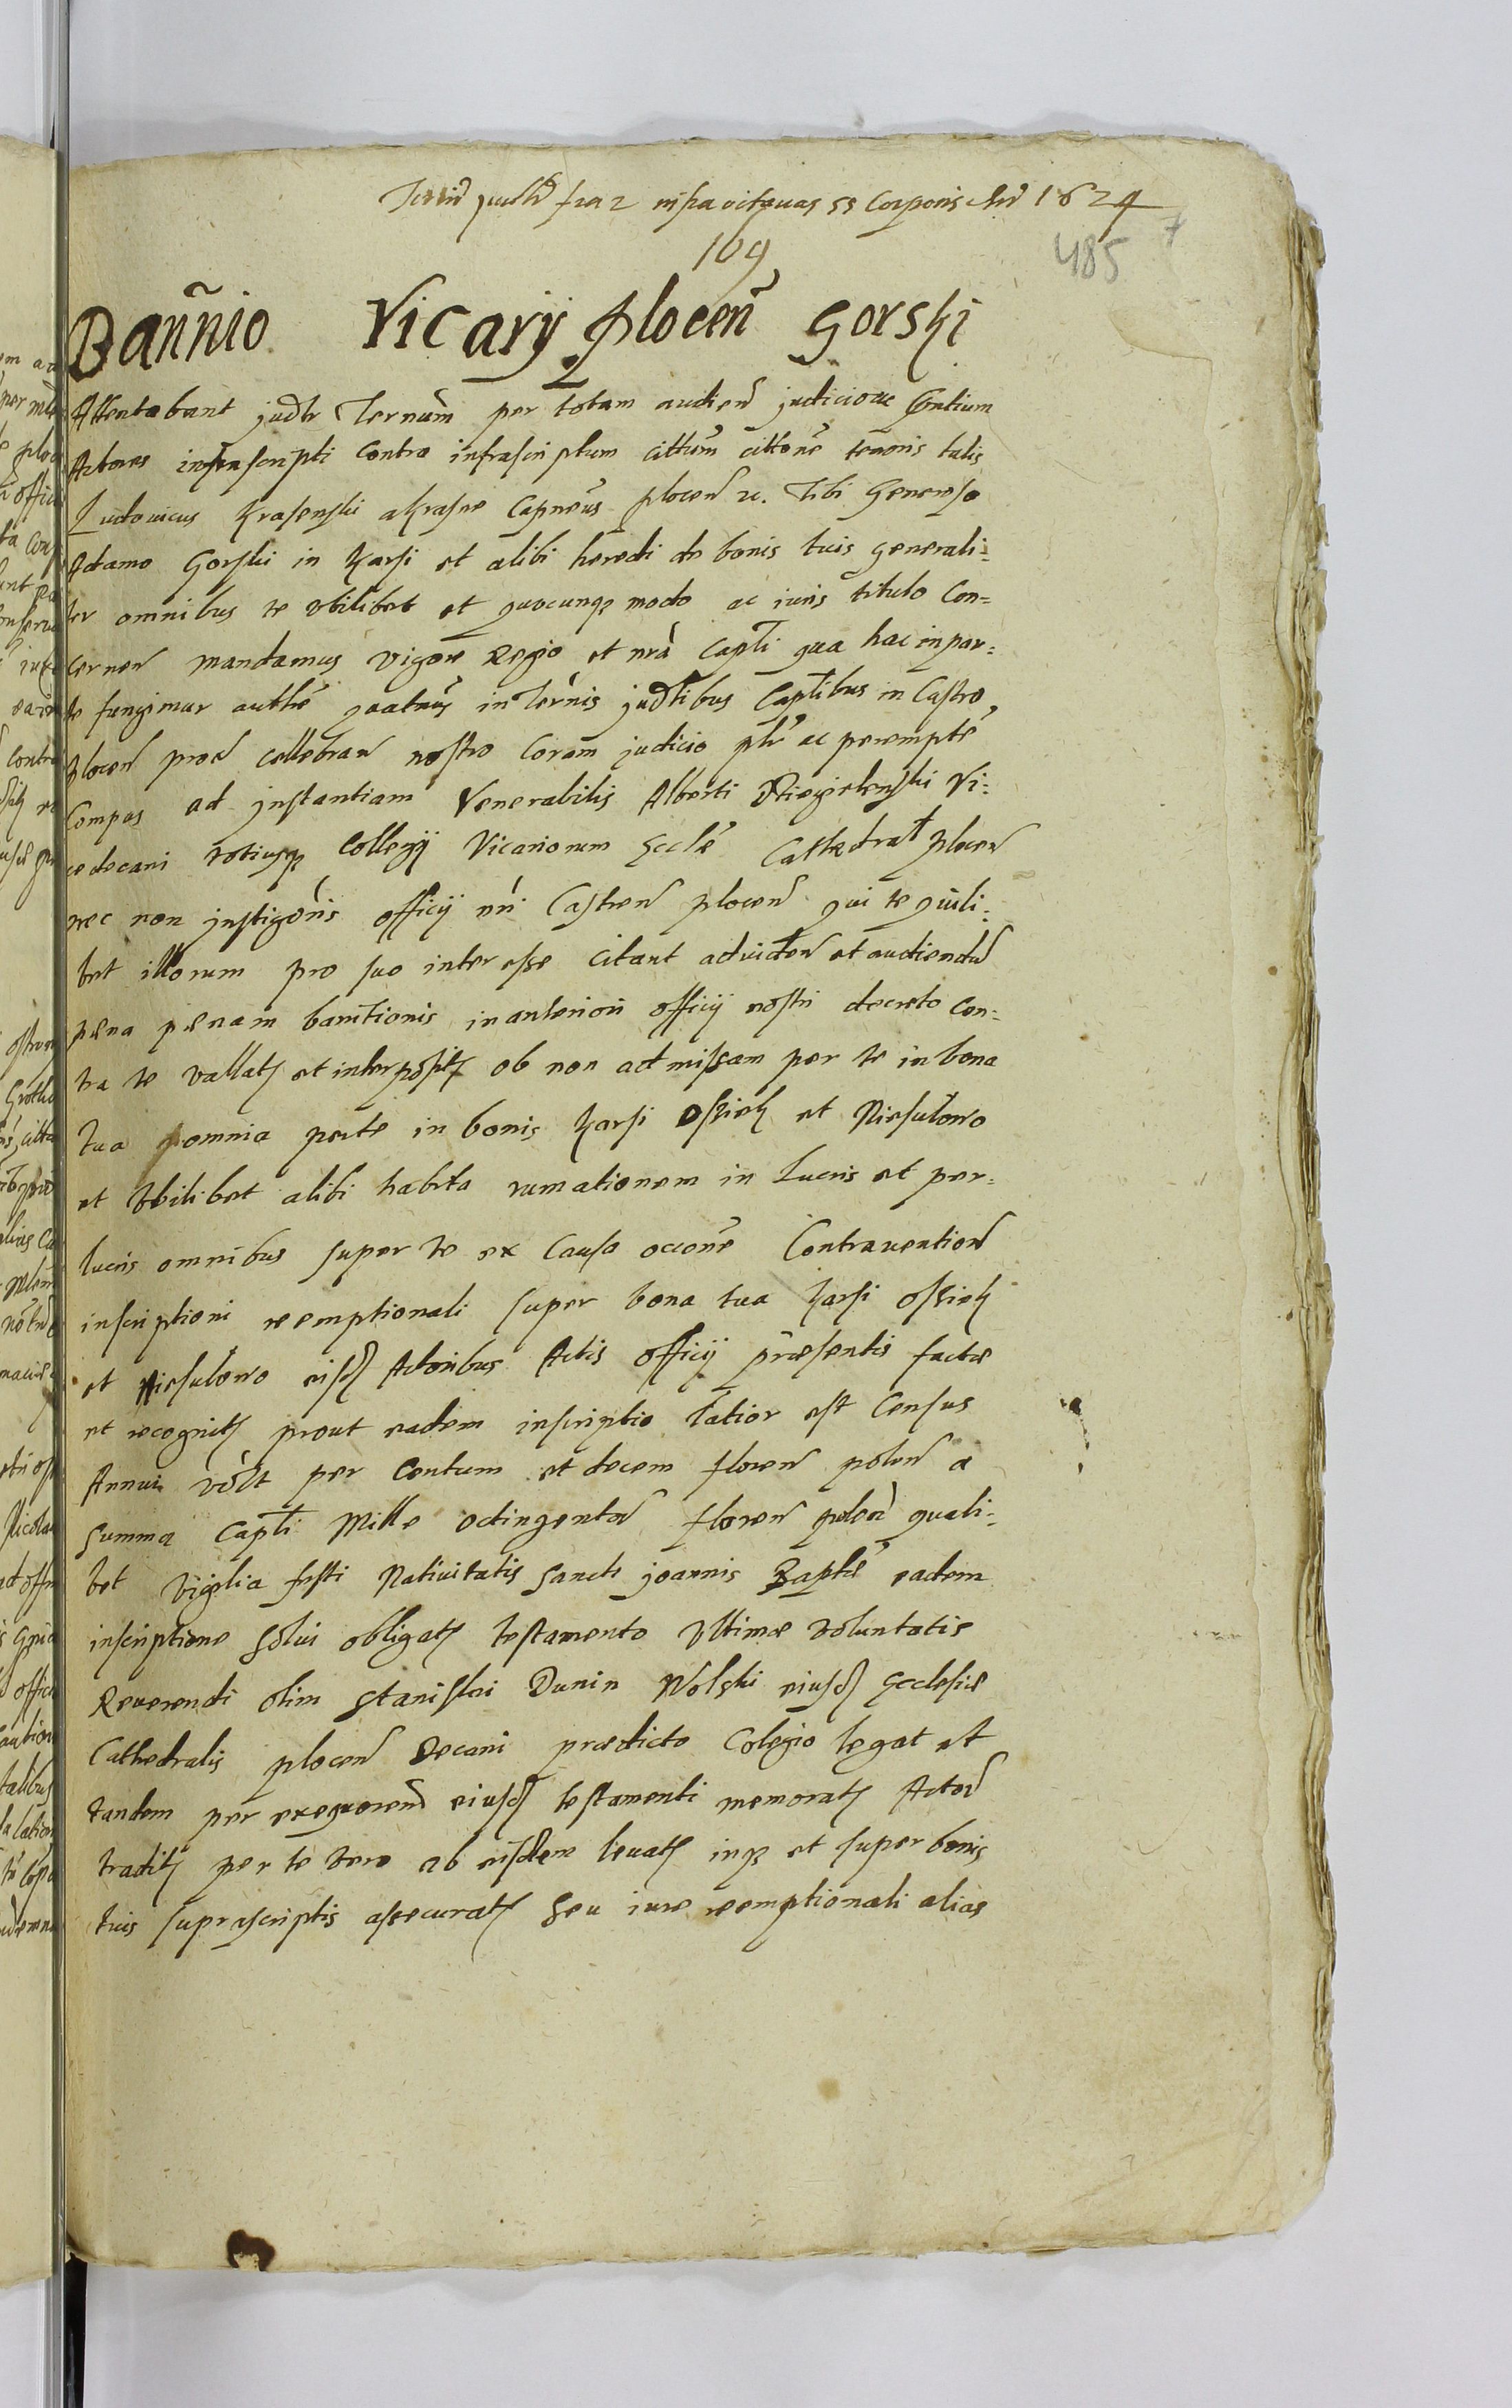 fra 2 infra octavas ss Corporis 1624
109
485 7
Banñio Vicarij plocen Gorski
Attentabant judlr Ternum per totam audien judiciorum Contium
Actores infrascripti contra infrascriptum cittum cittone tenoris talis
Ludovicus Krasenski a Krasne Capneus plocen rc. Tibi Generoso
Adamo Gorski in Karsi et alibi heredi de bonis tuis generali=
ter omnibus te Ubilibet et quocunq modo ac iuris titulo Con=
cernen mandamus vigore Regio et nra Capti qua hac in par=
te fungimur authe quatnus in Ternis judlibus Captibus in Castro
plocen prod cellebran nostro Coram judicio plr ac perempte
Compas ad jnstantiam Venerabilis Alberti Niegielenski Vi=
cedecani totiusq Collegij Vicariorum Eccle Cathedral plocen
nec non jnstigoris officij nri Castren plocen qui te quili=
bet illorum pro suo interesse citant ad viden et audiendu
pena penam bannitionis in anteriori officij nostri decreto Con=
tra te vallat et interposit ob non admissam per te in bona
tua omnia perte in bonis Karsi Osiek et Niesulowo
et Ubilibet alibi habita rumationem in Lucris et per=
lucris omnibus super te ex Causa occone Contravention
inscriptioni reemptionali super bona tua Karsi Osiek
et Niesulowo eisd Actoribus Actis officij præsentis factæ
et recognit prout eadem inscriptio Latior est Census
Annui volt per Centum et decem floren polon a
Summa Capti Mille octingentor floren polon quali=
bet Vigilia festi Nativitatis Sancti joannis Baptæ eadem
inscriptione Solui obligat testamento Ultimæ Voluntatis
Reverendi olim Stanislai Dunin Wolski eiusd Ecclesiæ
Cathedralis plocen Decani prædicto Colegio legat et
tandem per exequorem eiusd testamenti memorat Actor
tradit per te Vero ab eisdem levat inq et super bonis
tuis suprascriptis assecurat Seu iure reemptionali alias